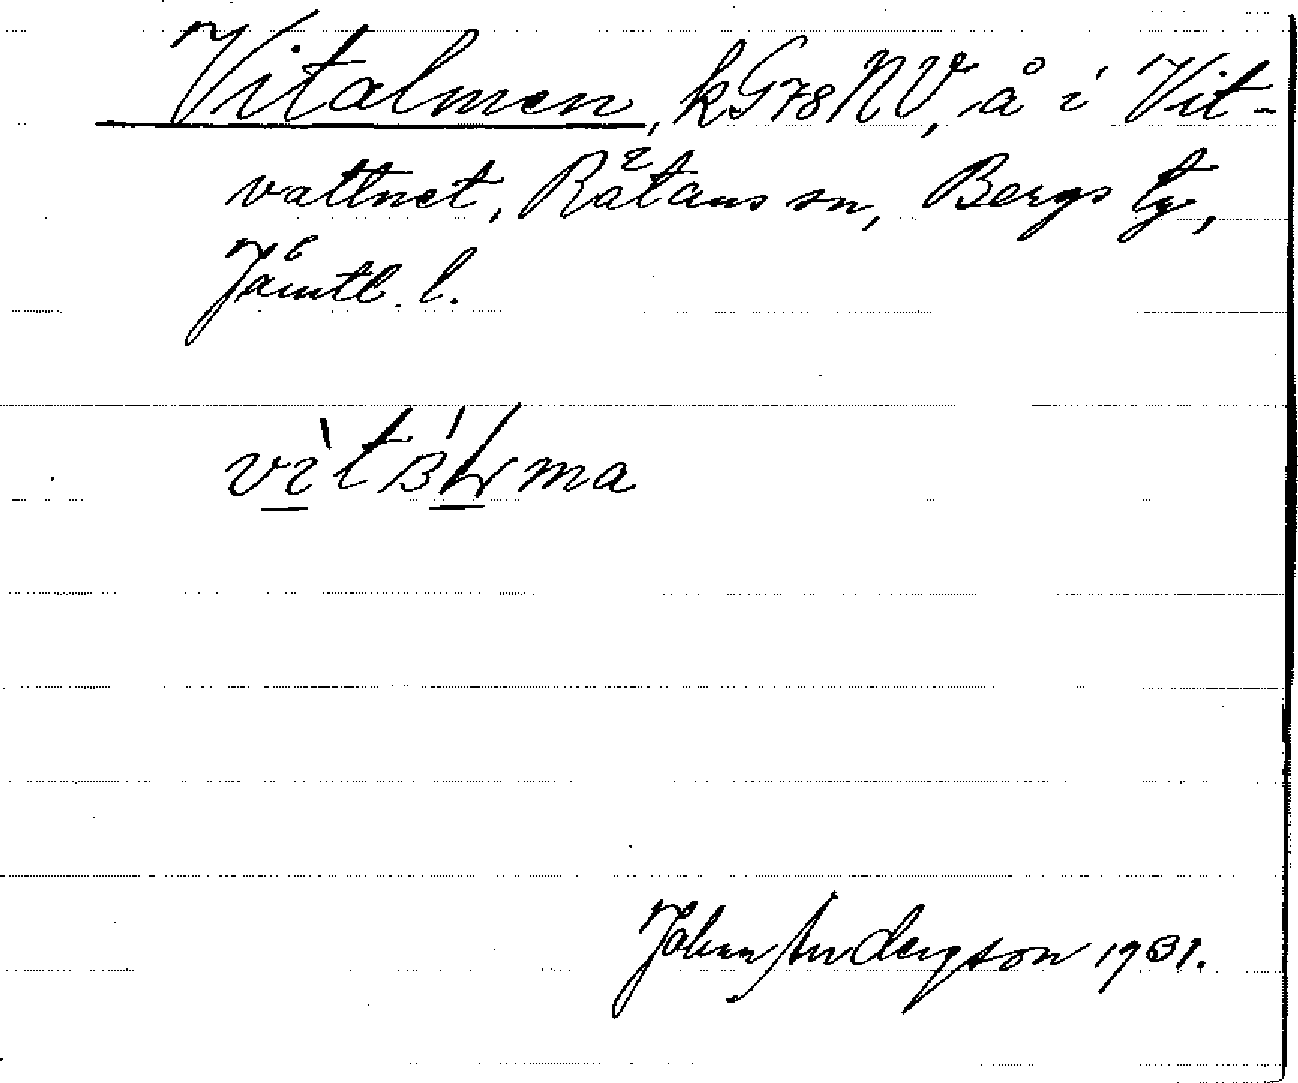 Vitalmen, kG78NV, å i Vit-
vattnet, Rätans sn, Bergs tg,
Jämtl. l.
Johan Andersson 1931.